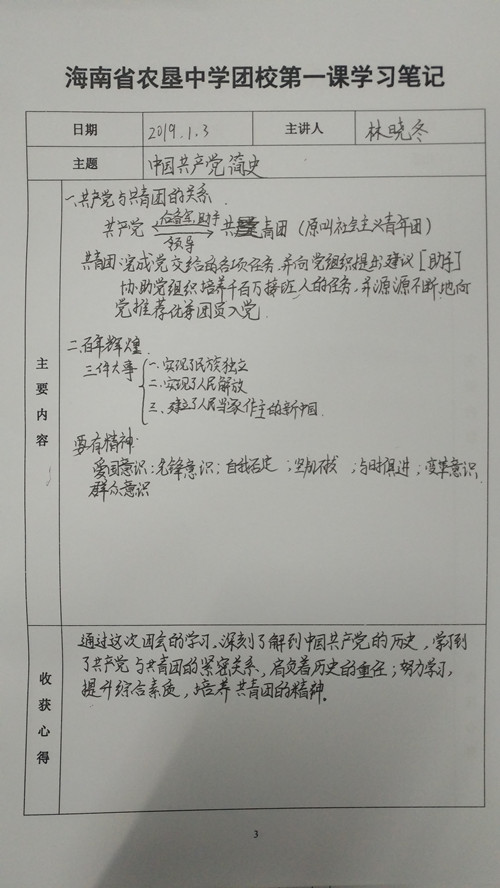 海南省农垦中学团校第一课学习笔记
日期 2019.1.3 主讲人 林晓冬
主题 中国共产党简史
主要内容
一.共产党与共青团的关系
后备军,助手
共产党 共青团(原叫社会主义青年团)
领导
共青团:完成党交给的各项任务,并向党组织提出建议[助手]
协助党组织培养千百万接班人的任务,并源源不断地向
党推荐优秀团员入党.
二.百年辉煌
三件大事 一.实现了民族独立
二.实现了人民解放
三.建立了人民当家作主的新中国.
要有精神:
爱国意识:先锋意识;自我否定;坚韧不拔;与时俱进;变革意识
群众意识
收获心得
通过这次团会的学习,深刻了解到中国共产党的历史,学习到
了共产党与共青团的紧密关系,肩负着历史的重任;努力学习,
提升综合素质,培养共青团的精神.
3